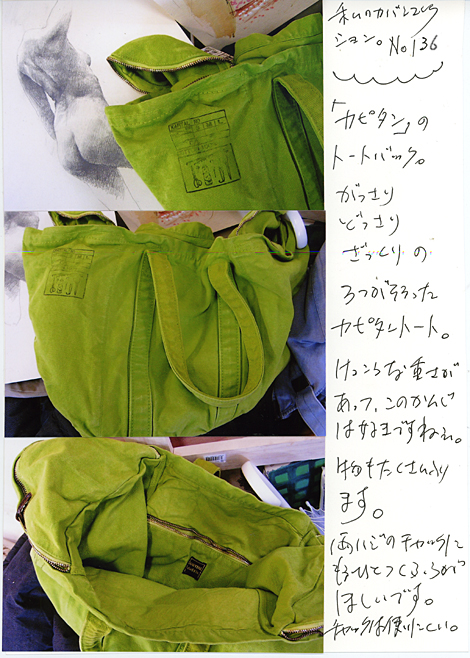 私のカバンコレク
ション。No136
「カピタン」の
トートバック。
がっさり
どっさり
ざっくりの
3つがそろった
カピタントート。
けっこうな重さが
あって、このかんじ
は好きですねぇ。
物もたくさん入り
ます。
両はじのチャックに
もうひとつくふうが
ほしいです。
チャックは使いにくい。